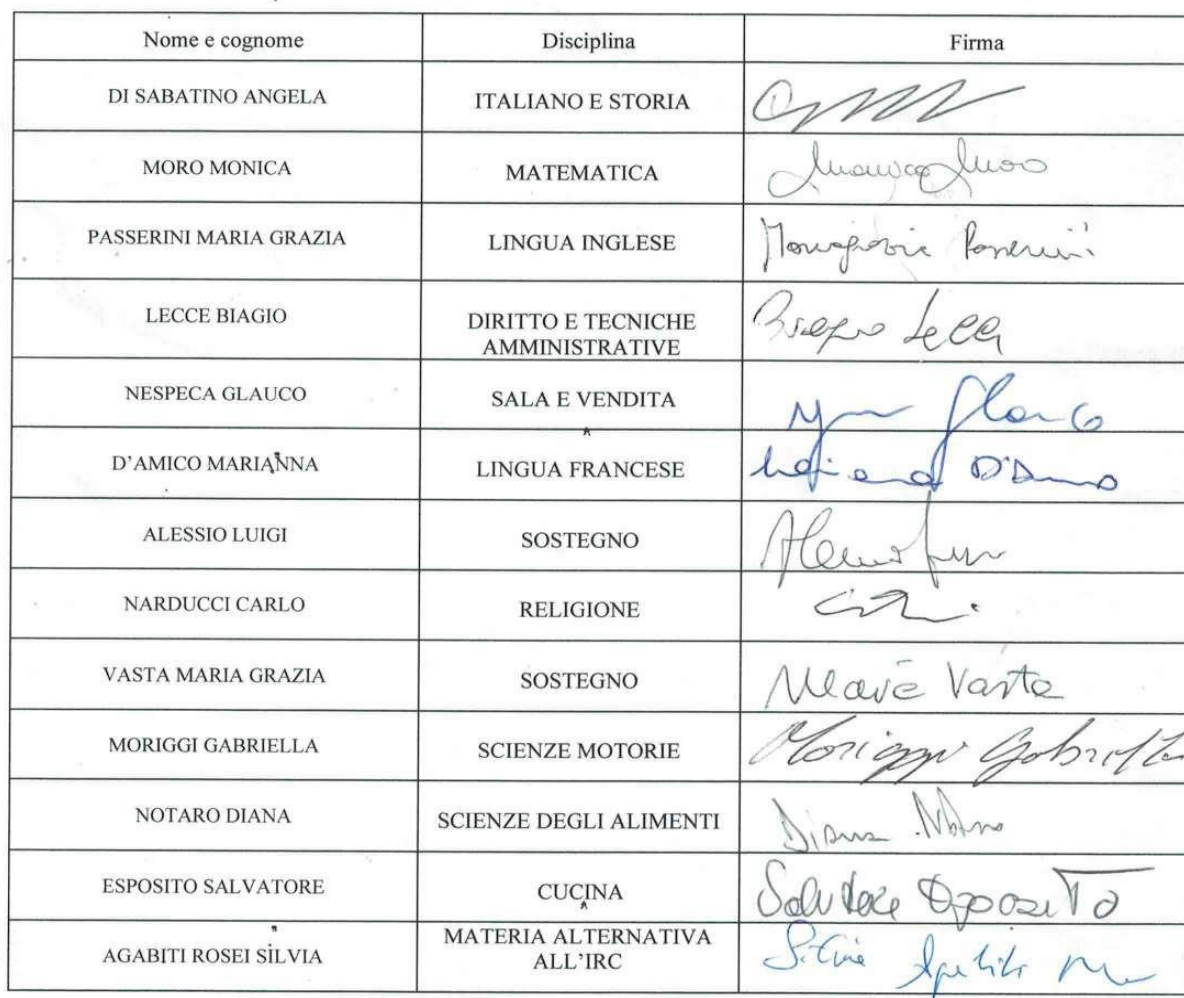 Nome e cognome Disciplina Firma
DI SABATINO ANGELA ITALIANO E STORIA
MORO MONICA MATEMATICA Monica Moro
PASSERINI MARIA GRAZIA LINGUA INGLESE Mariagrazia Passerini
LECCE BIAGIO DIRITTO E TECNICHE
AMMINISTRATIVE Biagio Lecce
NESPECA GLAUCO SALA E VENDITA Glauco
D'AMICO MARIANNA LINGUA FRANCESE D'Amico
ALESSIO LUIGI SOSTEGNO Alessio Luigi
NARDUCCI CARLO RELIGIONE
VASTA MARIA GRAZIA SOSTEGNO Maria Vasta
MORIGGI GABRIELLA SCIENZE MOTORIE Moriggi Gabriella
NOTARO DIANA SCIENZE DEGLI ALIMENTI Diana Notaro
ESPOSITO SALVATORE CUCINA Salvatore Esposito
AGABITI ROSEI SILVIA MATERIA ALTERNATIVA
ALL'IRC Silvia Agabiti